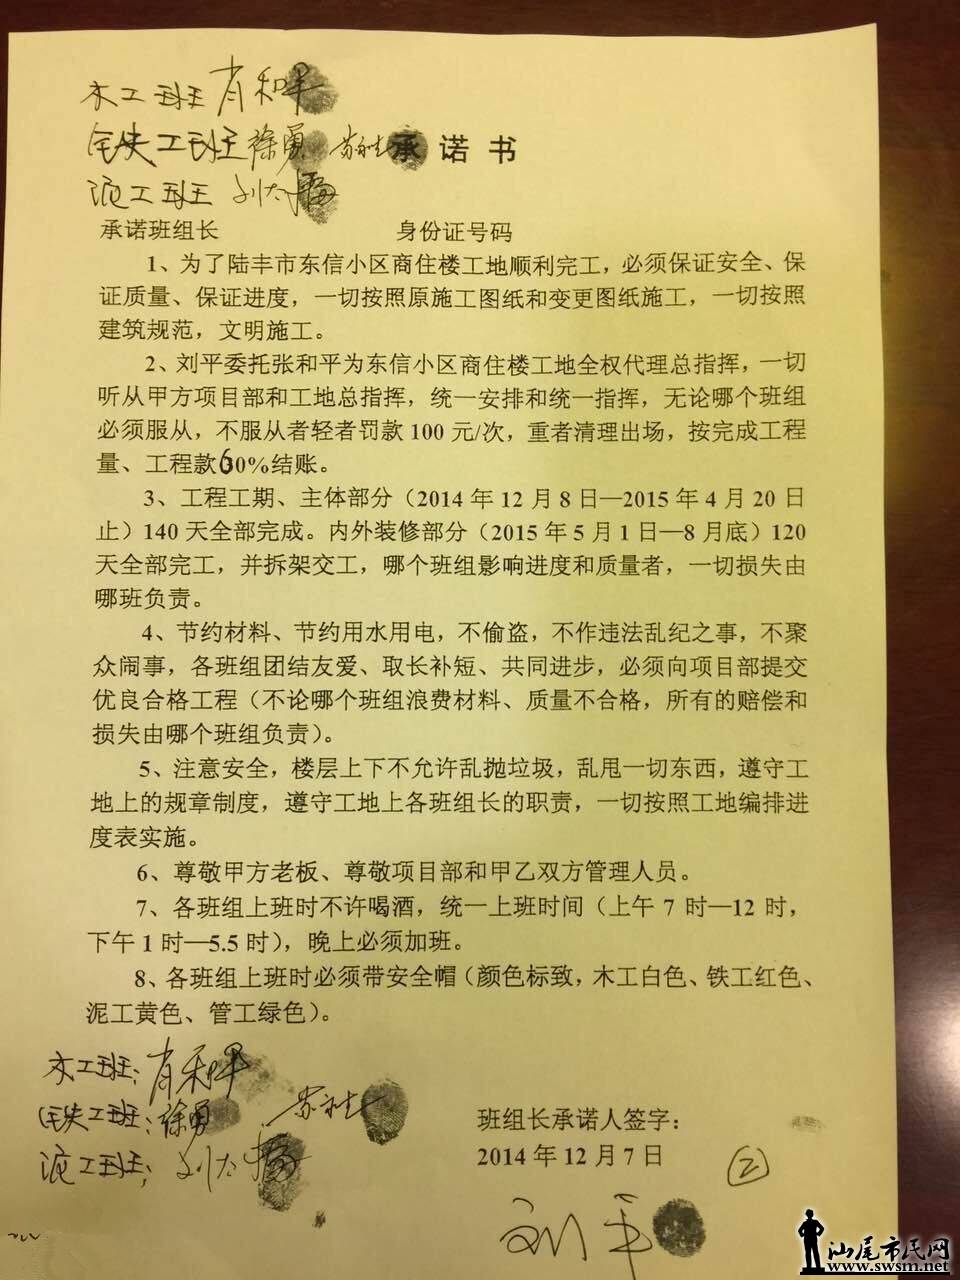 木工班 肖和平
铁工班 徐勇 苏永生 承诺书
泥工班 刘大
承诺班组长 身份证号码
1、为了陆丰市东信小区商住楼工地顺利完工，必须保证安全、保
证质量、保证进度，一切按照原施工图纸和变更图纸施工，一切按照
建筑规范，文明施工。
2、刘平委托张和平为东信小区商住楼工地全权代理总指挥，一切
听从甲方项目部和工地总指挥，统一安排和统一指挥，无论哪个班组
必须服从，不服从者轻者罚款100元/次，重者清理出场，按完成工程
量、工程款60%结账。
3、工程工期、主体部分（2014年12月8日—2015年4月20日
止）140天全部完成。内外装修部分（2015年5月1日—8月底）120
天全部完工，并拆架交工，哪个班组影响进度和质量者，一切损失由
哪班负责。
4、节约材料、节约用水用电，不偷盗，不作违法乱纪之事，不聚
众闹事，各班组团结友爱、取长补短、共同进步，必须向项目部提交
优良合格工程（不论哪个班组浪费材料、质量不合格，所有的赔偿和
损失由哪个班组负责）。
5、注意安全，楼层上下不允许乱抛垃圾，乱甩一切东西，遵守工
地上的规章制度，遵守工地上各班组长的职责，一切按照工地编排进
度表实施。
6、尊敬甲方老板、尊敬项目部和甲乙双方管理人员。
7、各班组上班时不许喝酒，统一上班时间（上午7时—12时，
下午1时—5.5时），晚上必须加班。
8、各班组上班时必须带安全帽（颜色标致，木工白色、铁工红色、
泥工黄色、管工绿色）。
木工班：肖和平
铁工班：徐勇 苏永生
泥工班：刘大
班组长承诺人签字：
2014年12月7日
②
刘平
汕尾市民网
www.swsm.net